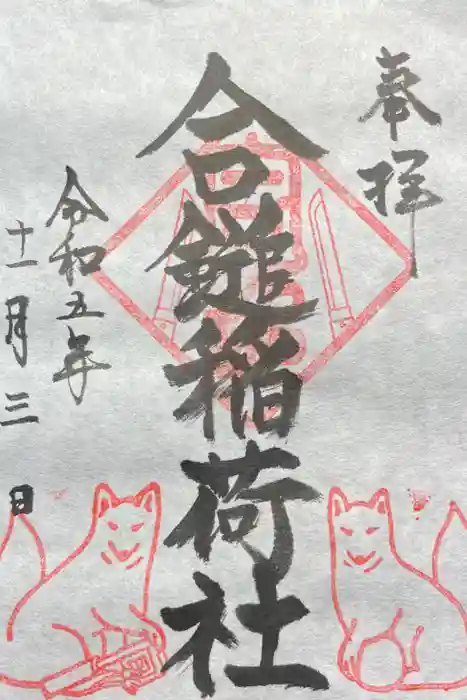 奉拝
合鎚稲荷社
令和五年
十一月三日